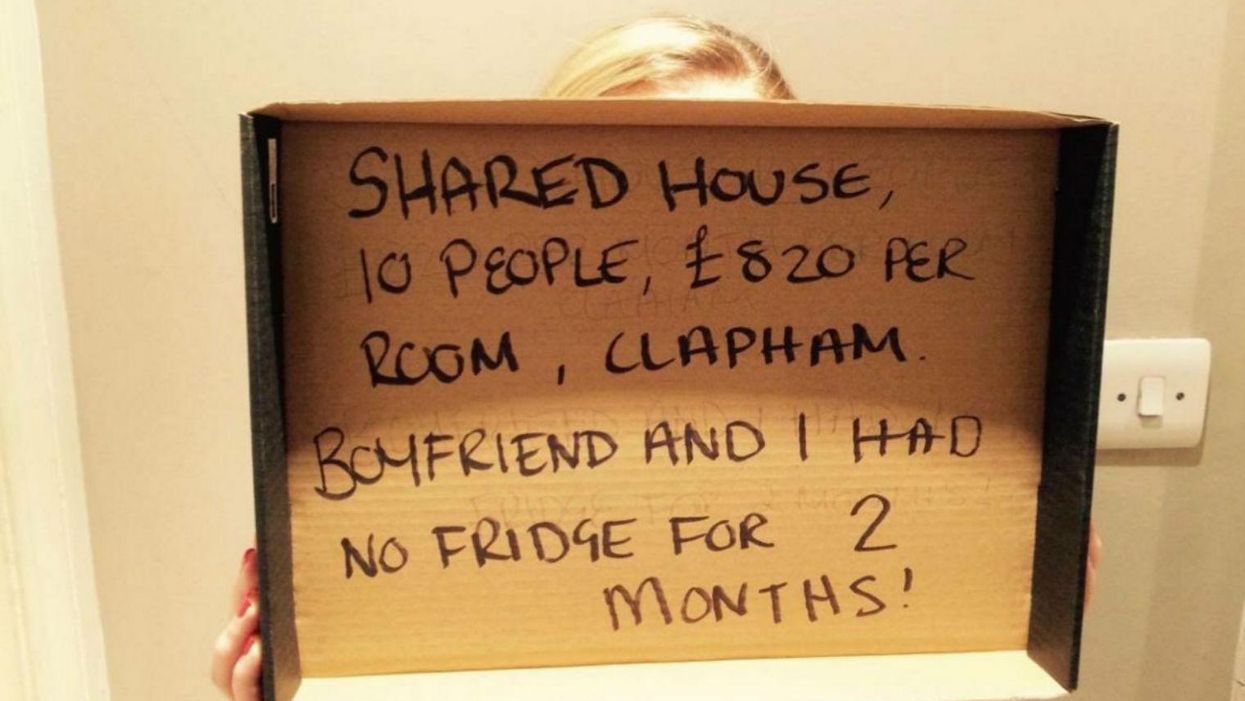 SHARED HOUSE,
10 PEOPLE, £820 PER
ROOM, CLAPHAM.
BOYFRIEND AND I HAD
NO FRIDGE FOR 2
MONTHS!